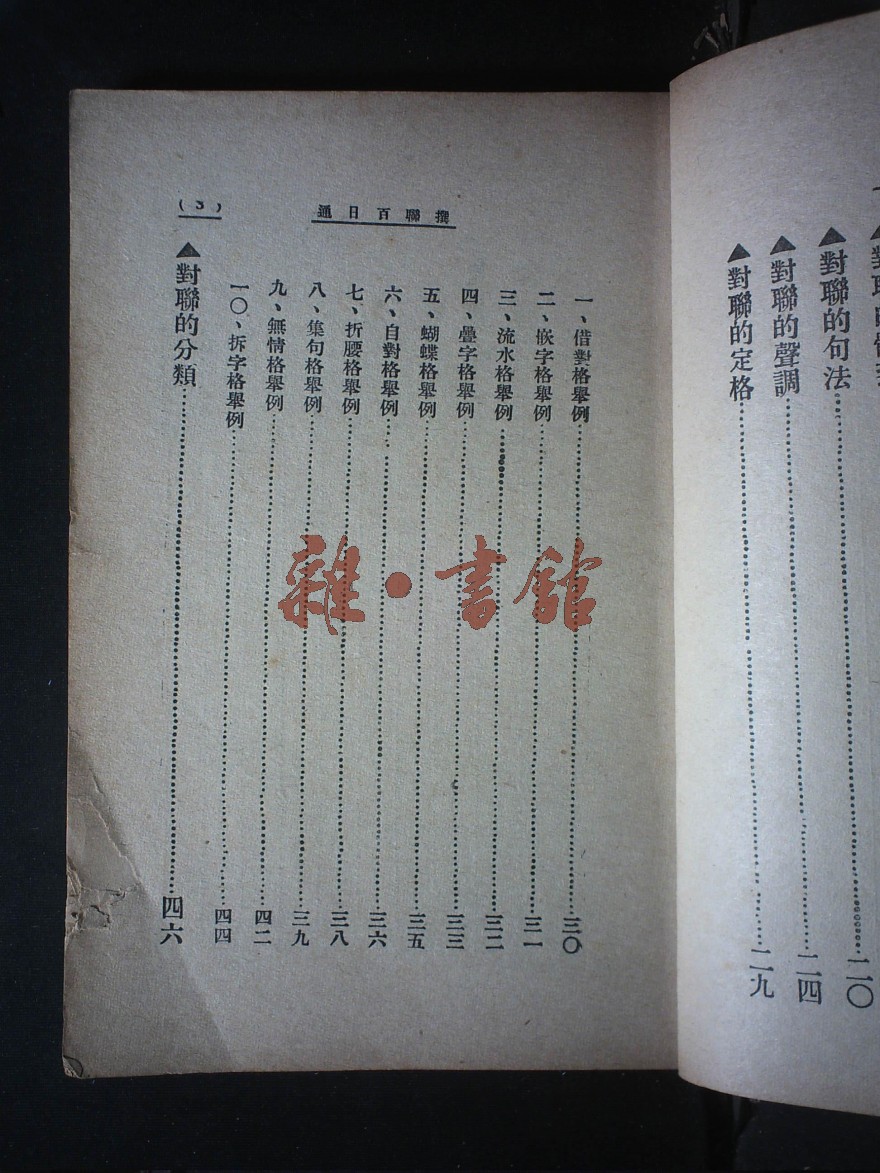 ▲對聯的句法……二〇
▲對聯的聲調……二四
▲對聯的定格……二九
撰聯百日通
(3)
一、借對格舉例……三〇
二、嵌字格舉例……三一
三、流水格舉例……三二
四、疊字格舉例……三三
五、蝴蝶格舉例……三五
六、自對格舉例……三六
七、折腰格舉例……三八
八、集句格舉例……三九
九、無情格舉例……四二
一〇、拆字格舉例……四四
▲對聯的分類……四六
雜·書館